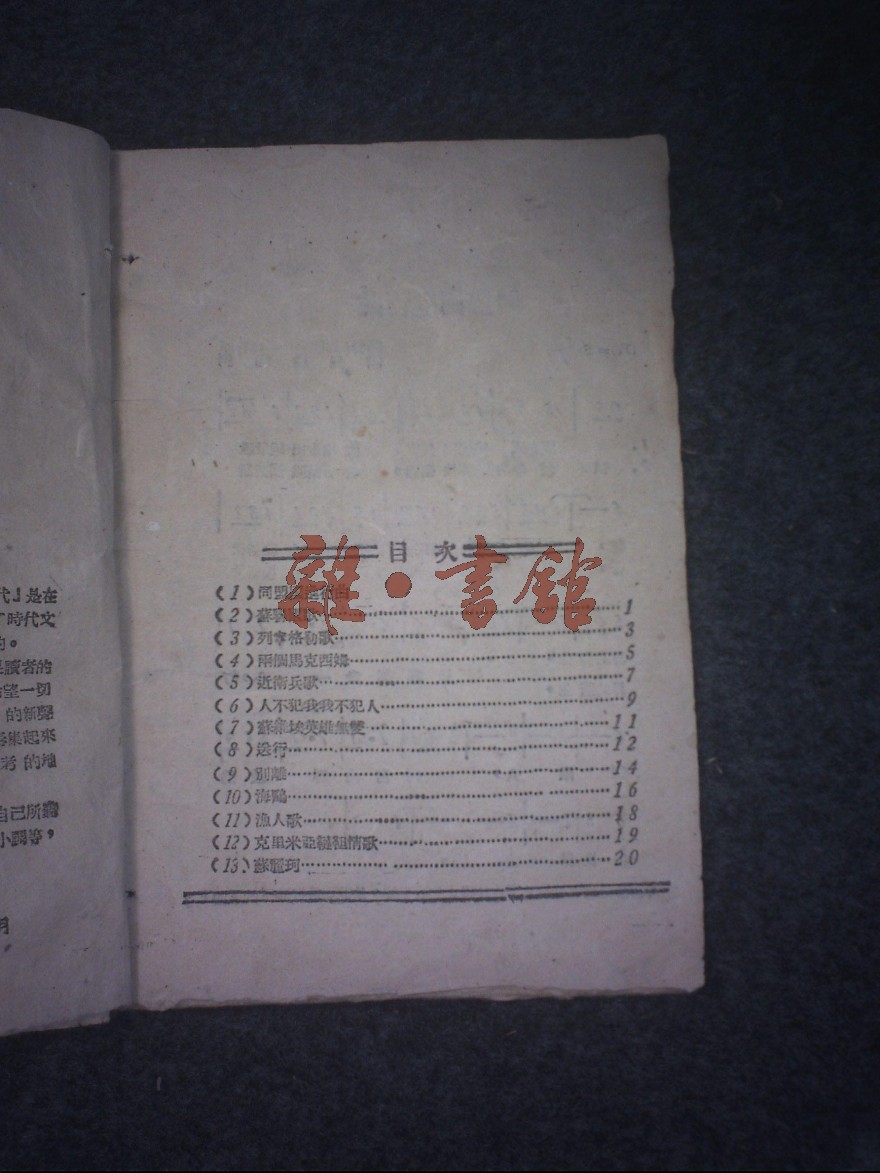 代』是在
時代文
的。
是讀者的
希望一切
的新聲
集起來
的地
自己所聽
小調等，
月
目 次
雜·書館
（1）同盟
（2）蘇……1
（3）列寧格勒歌……3
（4）兩個馬克西姆……5
（5）近衛兵歌……7
（6）人不犯我我不犯人……9
（7）蘇維埃英雄無雙……11
（8）送行……12
（9）別離……14
（10）海鷗……16
（11）漁人歌……18
（12）克里米亞韃靼情歌……19
（13）蘇麗珂……20